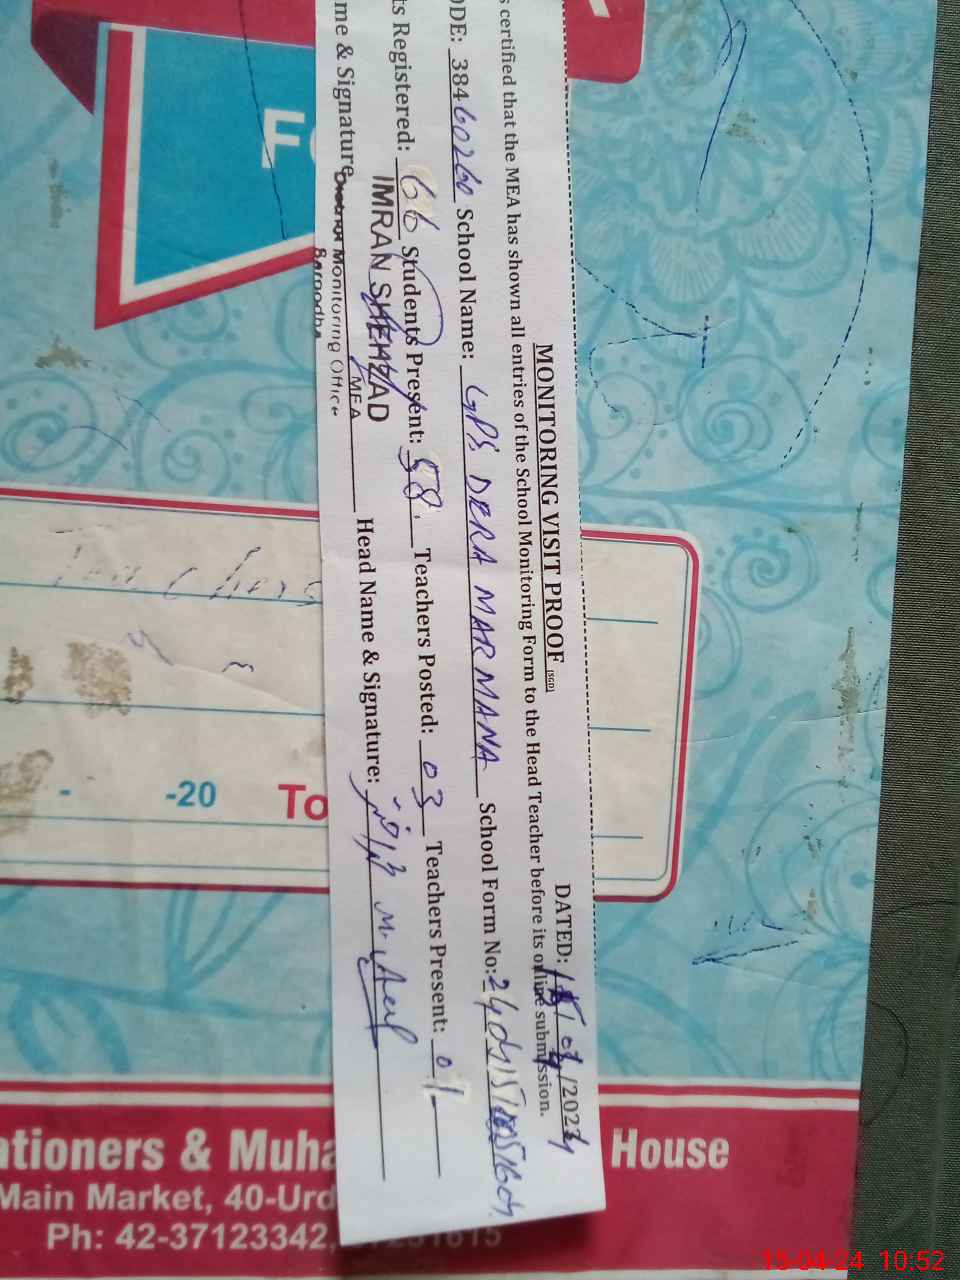 MONITORING VISIT PROOF (SGD)
DATED: 15/04/2024
s certified that the MEA has shown all entries of the School Monitoring Form to the Head Teacher before its online submission.
ODE: 38460260 School Name: GPS DERA MARMANA School Form No:
ts Registered: 66 Students Present: 58. Teachers Posted: 03 Teachers Present: 01
me & Signature Head Name & Signature:
IMRAN SHEHZAD
MEA
District Monitoring Office
Sargodha
Teachers
-20
To
ationers & Muha
House
Main Market, 40-Urd
Ph: 42-37123342,
15-04-24 10:52